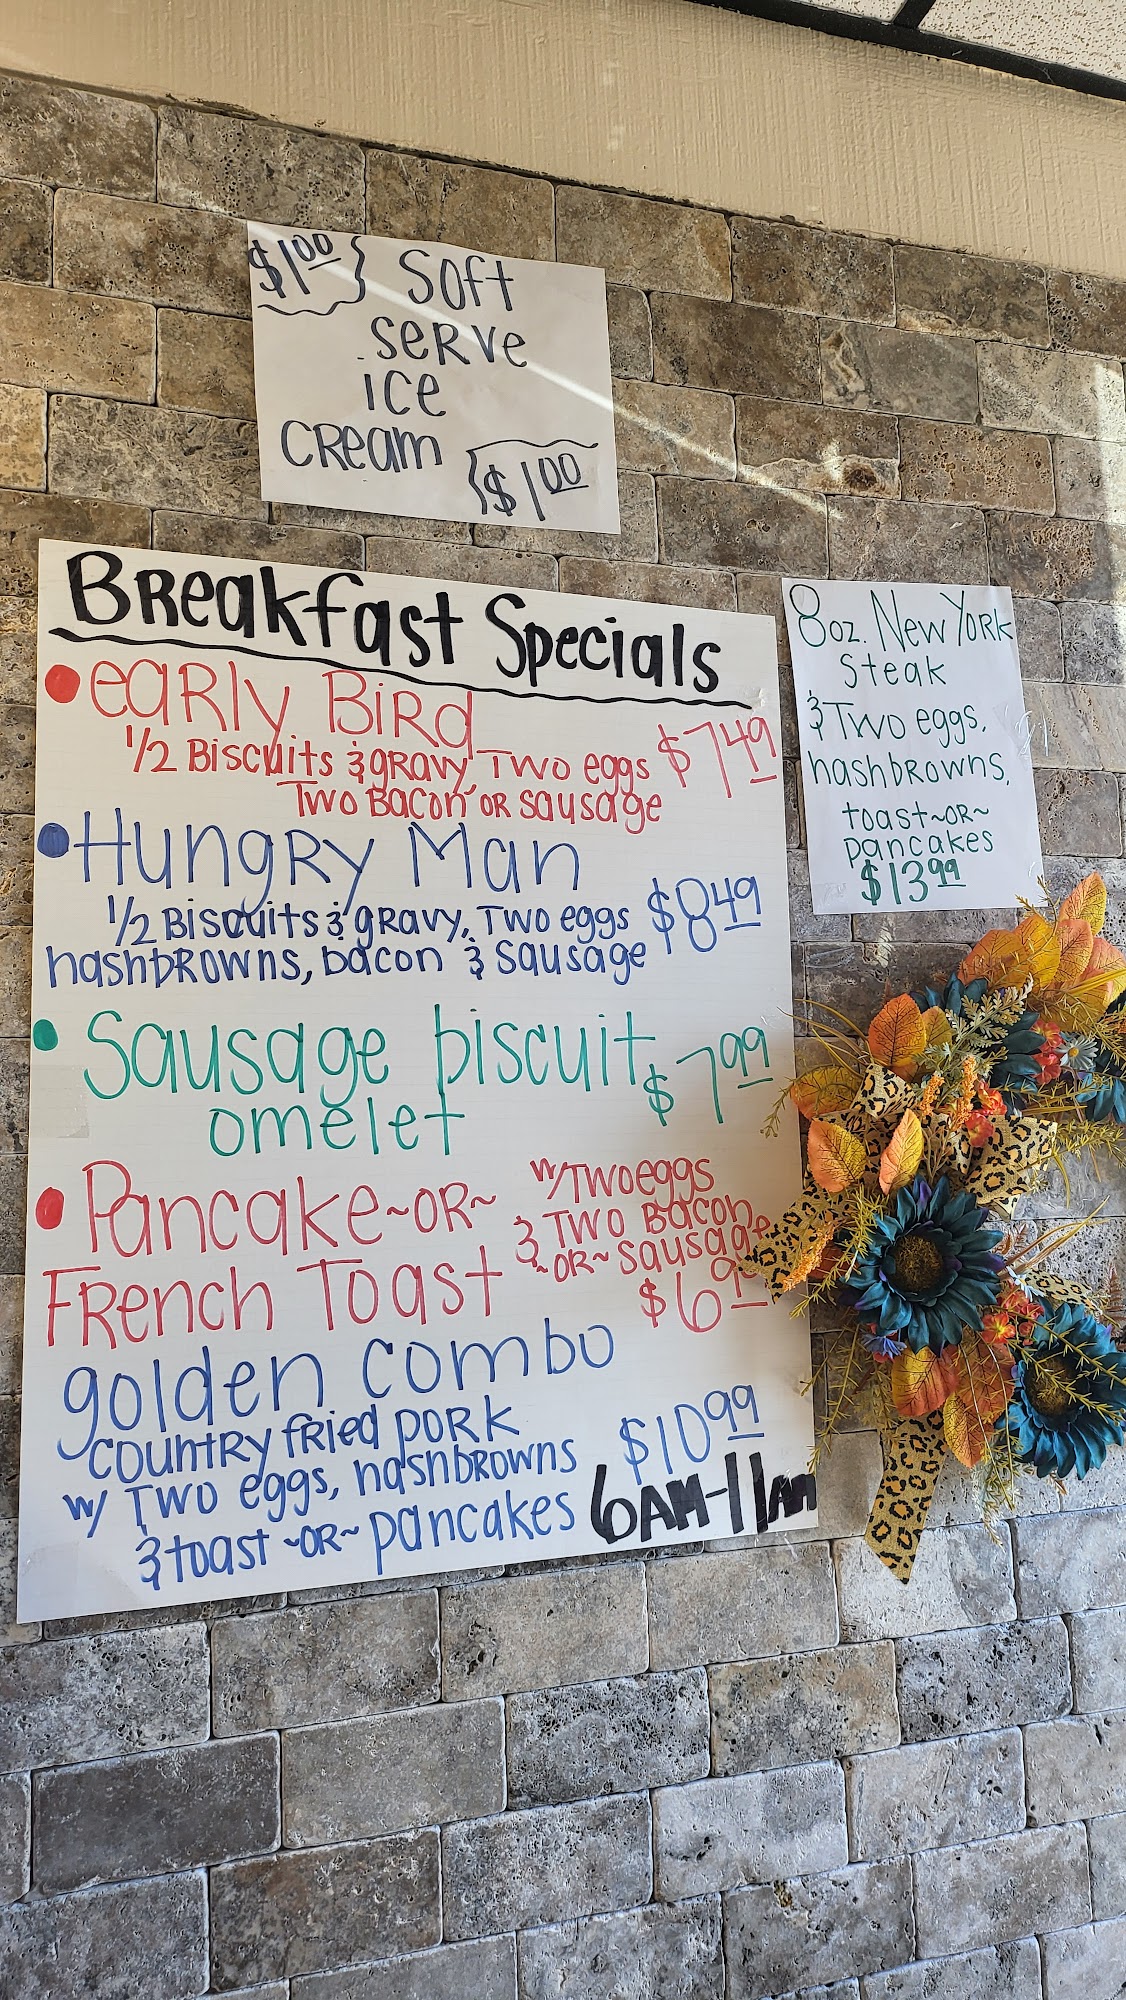 $1.00 Soft
serve
ice
cream
$1.00
Breakfast Specials
early Bird
1/2 Biscuits & gravy, Two eggs $7.49
Two Bacon or sausage
Hungry Man
1/2 Biscuits & gravy, Two eggs $8.49
hashbrowns, bacon & sausage
Sausage biscuit $7.99
omelet
Pancake ~OR~ w/ Two eggs
& Two Bacon
French Toast ~OR~ Sausage
golden combo
country fried pork $10.99
w/ Two eggs, hashbrowns
& toast ~OR~ pancakes 6AM-11AM
8oz. New York
Steak
& Two eggs,
hashbrowns,
toast ~OR~
pancakes
$13.99